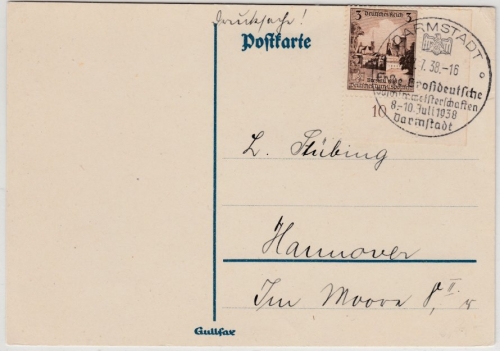 Drucksache!
Postkarte
3 Deutsches Reich 3
DARMSTADT
7. 38.-16
Erste Großdeutsche
meisterschaften
8.-10. Juli 1938
Darmstadt
10
L. Stübing
Hannover
Im Moore 8, II
Gullfax